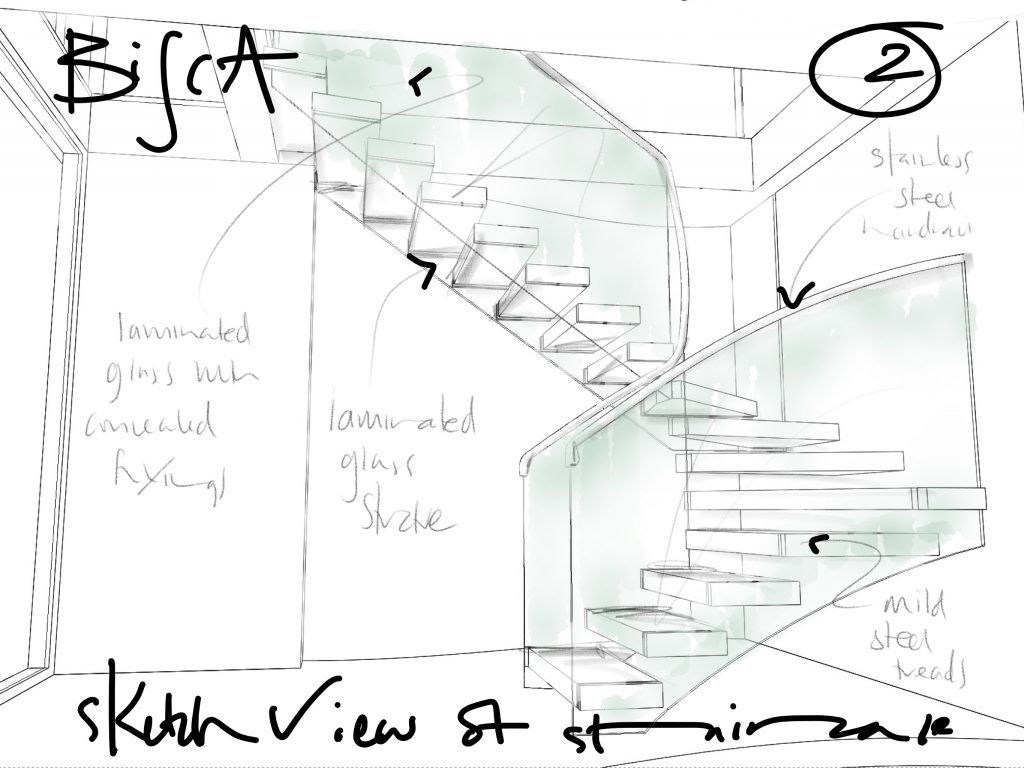 BiSCA
2
stainless
steel
handrail
laminated
glass with
concealed
fixings
laminated
glass
mild
steel
treads
sketch view of staircase